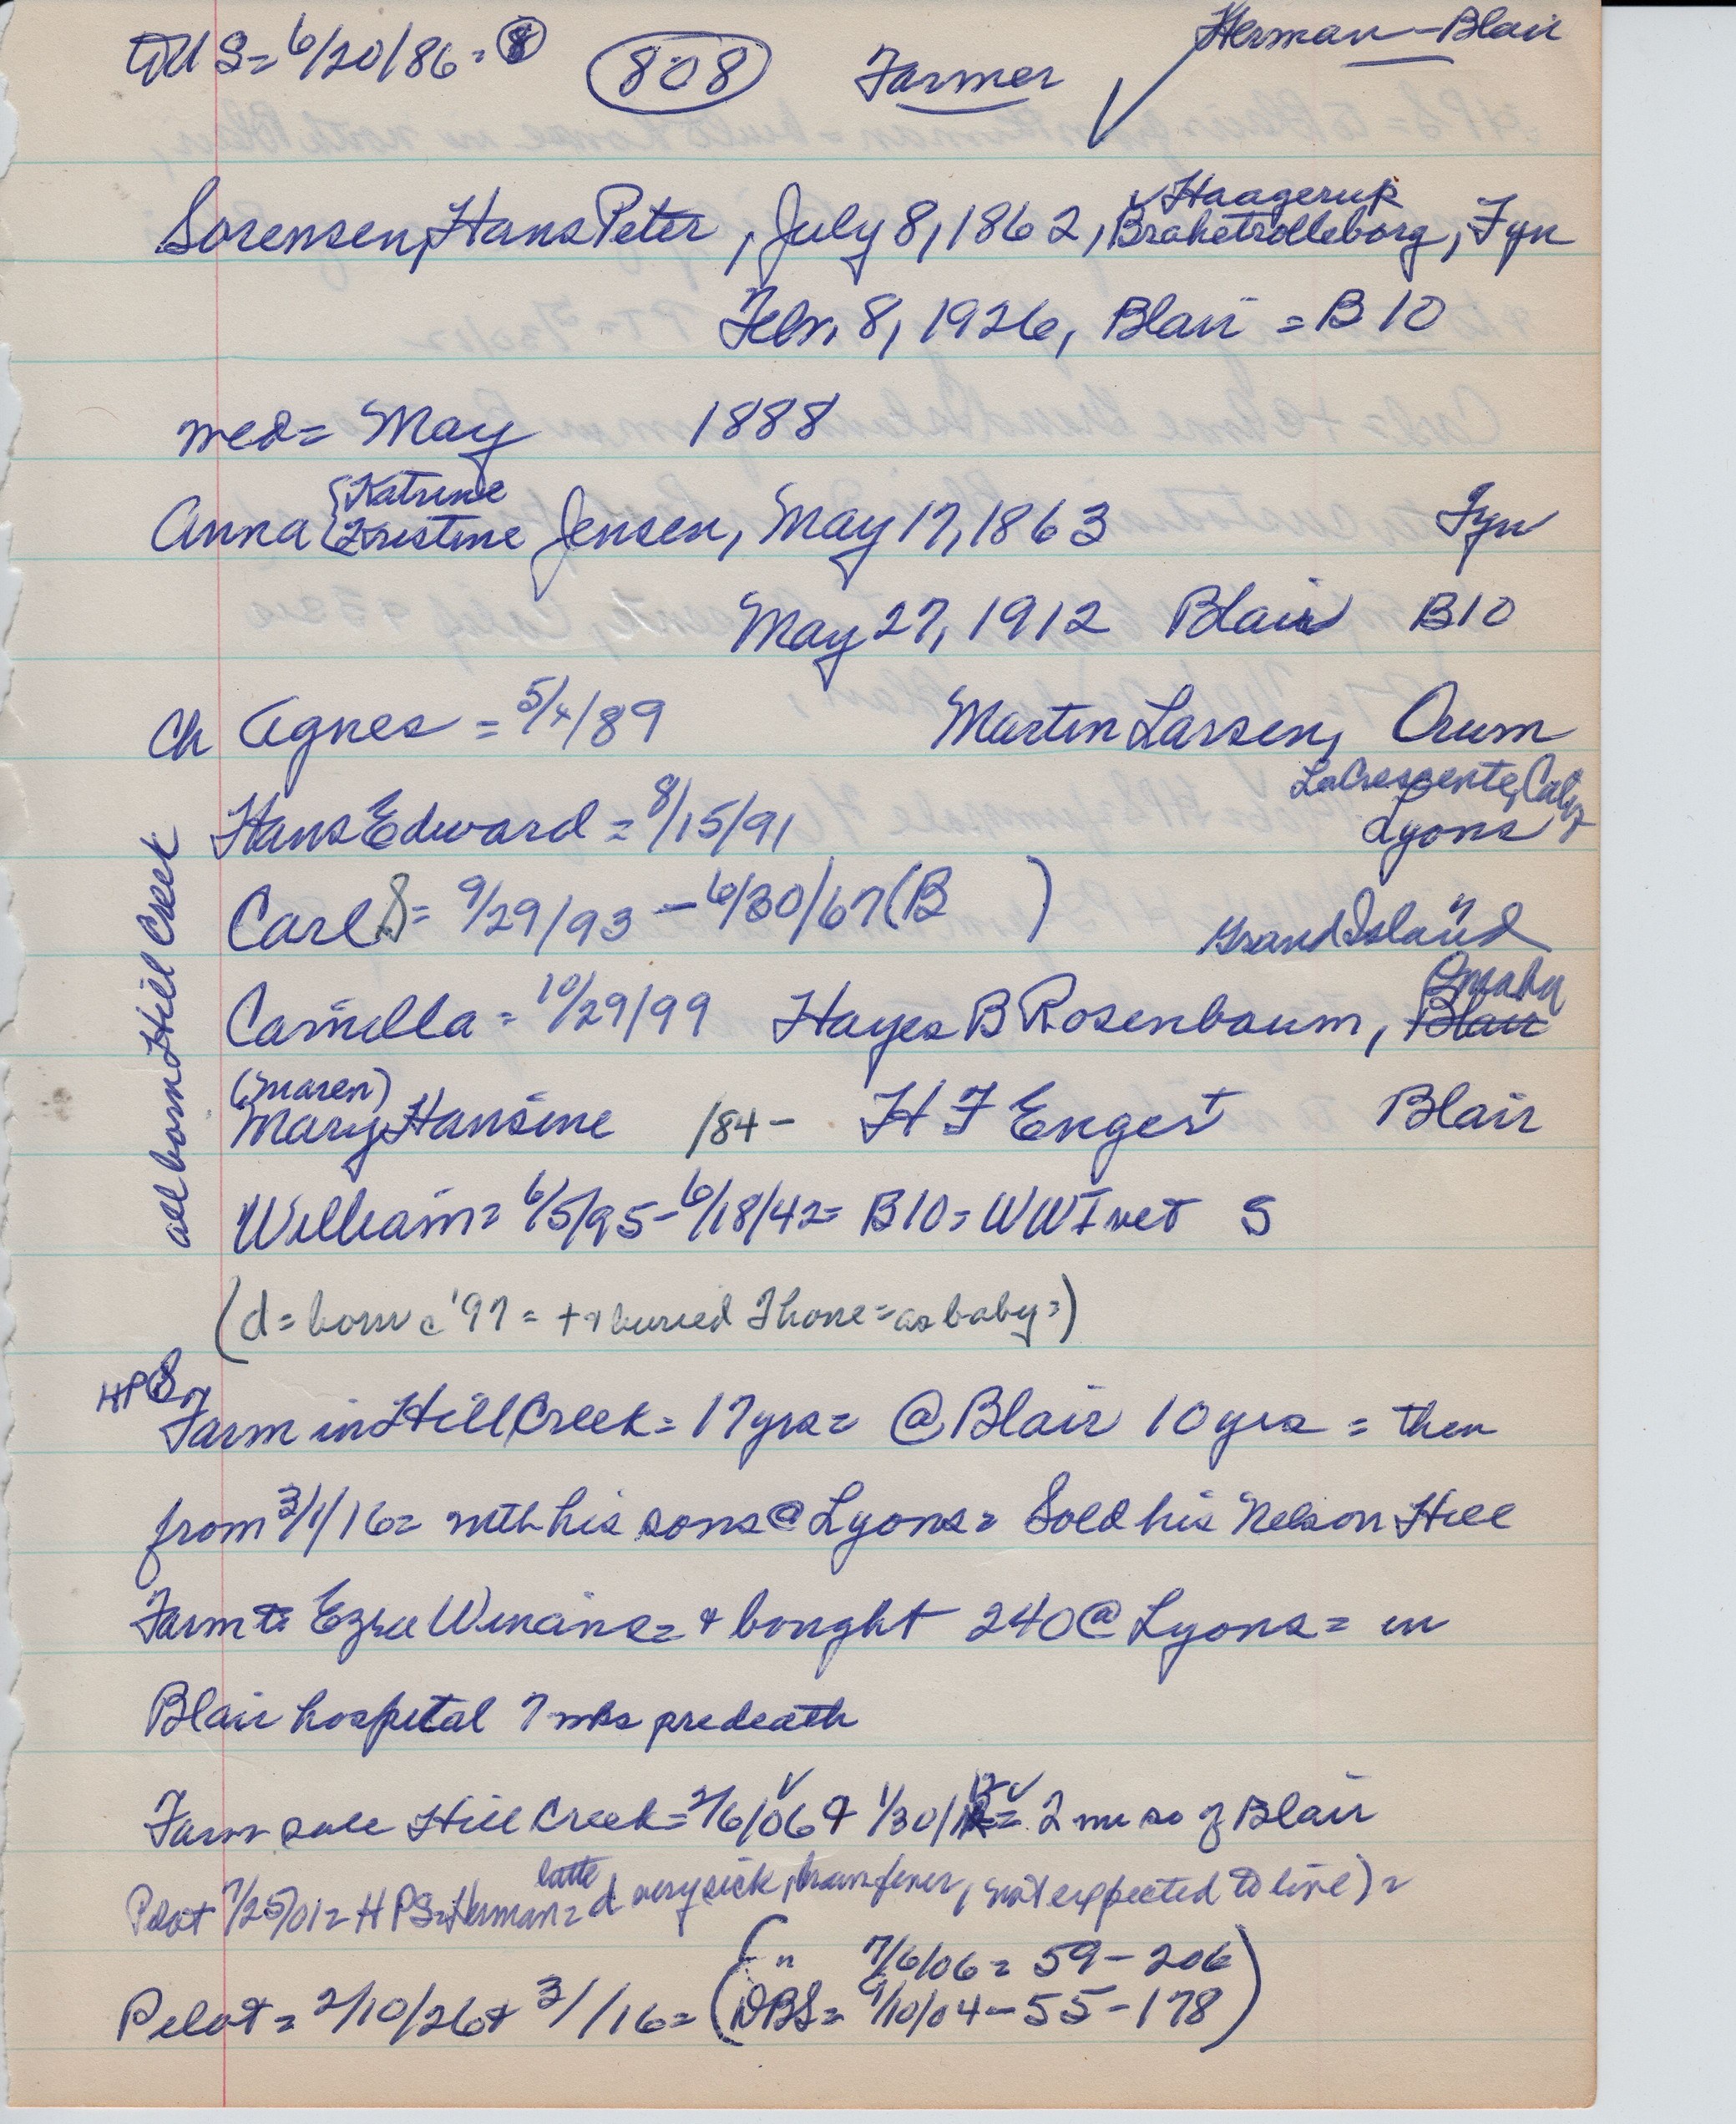 TUS= 6/20/86= 8 808 Farmer Herman-Blair
Haagerup
Sorensen, Hans Peter, July 8, 1862, Brahetrolleborg, Fyn
Febr. 8, 1926, Blair = B 10
med= May 1888
Katrine
Anna Kristine Jensen, May 17, 1863 Fyn
May 27, 1912 Blair B10
Ch Agnes = 5/4/89 Martin Larsen, Orum
LaCrescente, Calif
Hans Edward = 8/15/91 Lyons
Carl S= 9/29/93 - 6/30/67 (B ) "
Grand Island
Omaha
Camilla = 10/29/99 Hayes B Rosenbaum, Blair
(Maren)
Mary Hansine /84- H F Engert Blair
William= 6/5/95-6/18/42= B10= WWI vet S
all born Hill Creek
(d= born c '97 = + & buried Thone= as baby=)
HPS
Farm in Hill Creek= 17 yrs= @ Blair 10 yrs = then
from 3/1/16= with his sons @ Lyons= Sold his Nelson Hill
Farm to Ezra Winans= & bought 240 @ Lyons= in
Blair hospital 7 wks predeath
Farm sale Hill Creek= 2/6/06 & 1/30/12= 2 mi so of Blair
Pilot 7/25/01= HPS=Herman= latte d very sick, brain fever, not expected to live)=
( " 7/6/06= 59-206
Pilot= 2/10/26& 3/ /16= (DBS= 9/10/04-55-178)